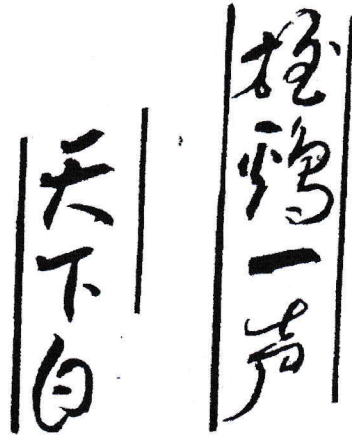 雄鸡一声
天下白